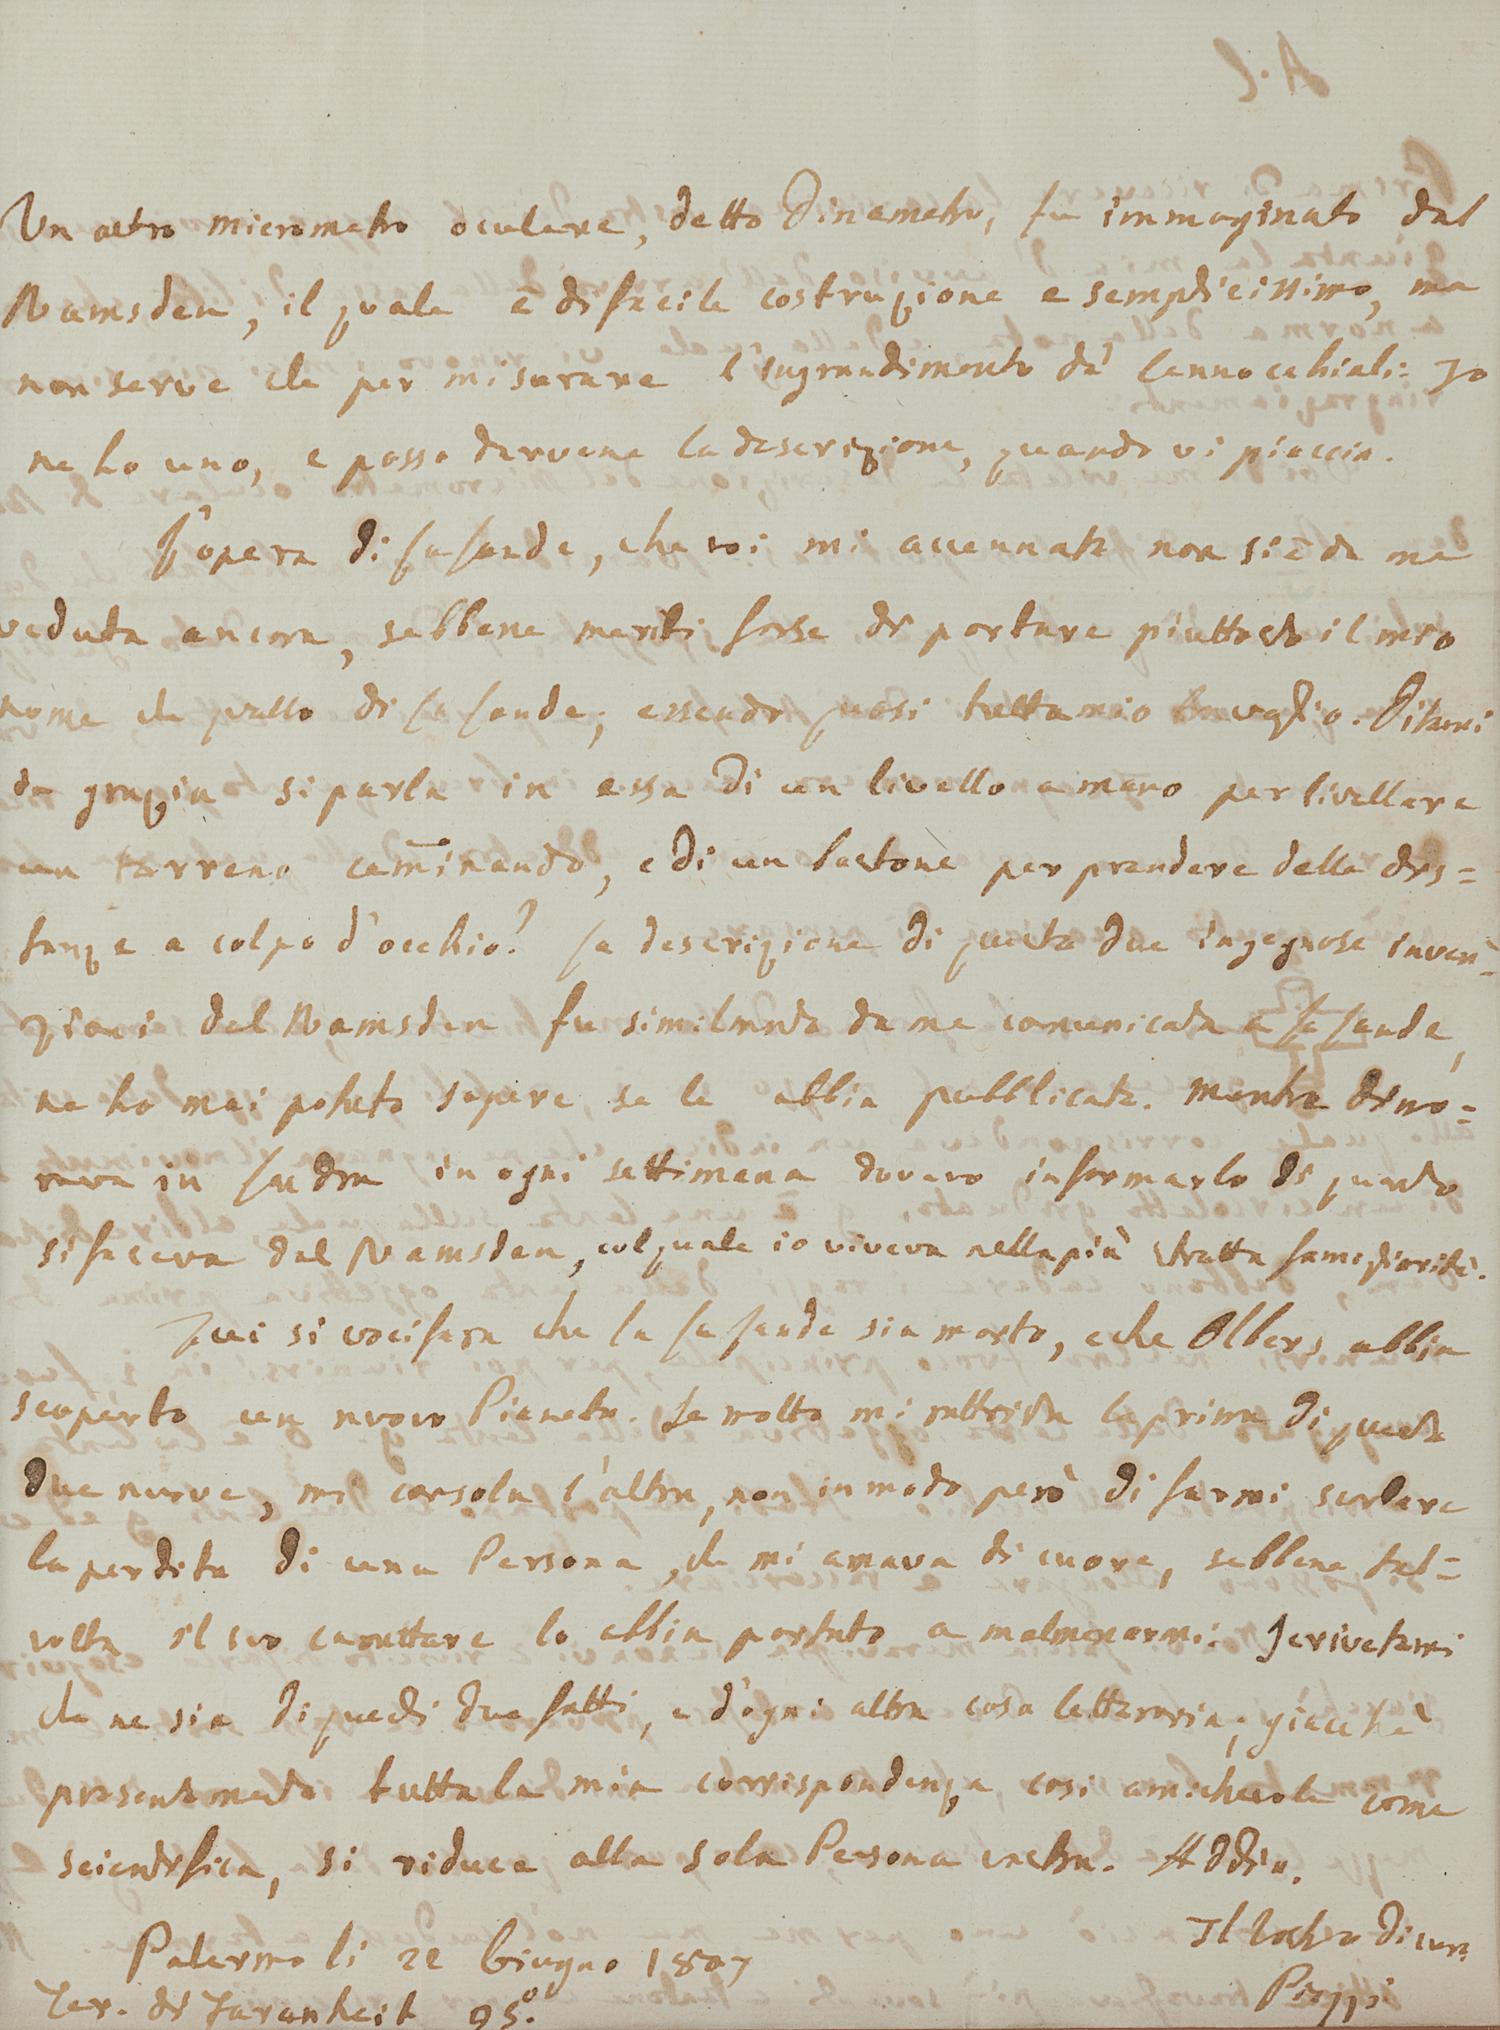 Un altro micrometro oculare, detto Dinametro, fu immaginato dal
Ramsden, il quale è di facile costruzione e semplicissimo, ma
non serve che per misurare l'ingrandimento da' Cannocchiali: Io
ne ho uno, e posso darvene la descrizione, quando vi piaccia.
L'opera di La Lande, che voi mi accennate non si è da me
veduta ancora, sebbene meriti forse di portare piuttosto il mio
nome che quello di La Lande; essendo quasi tutta mio travaglio. Ditemi
di grazia si parla in essa di un livello a mano per livellare
un terreno camminando, e di un bastone per prendere delle dis=
tanze a colpo d'occhio? La descrizione di queste due ingegnose inven=
zioni del Ramsden fu similmente da me comunicata a La Lande,
ne ho mai potuto sapere se le abbia pubblicate. Mentre dimo=
rava in Londra in ogni settimana doveva informarlo di quanto
si faceva dal Ramsden, col quale io viveva nella più stretta famigliarità.
Qui si vocifera che la La Lande sia morto, e che Olbers abbia
scoperto un nuovo Pianeta. Se molto mi rattrista la prima di queste
due nuove, mi consola l'altra, non in modo però di farmi scordare
la perdita di una Persona, che mi amava di cuore, sebbene tal=
volta il suo carattere lo abbia portato a malmenarmi. Scrivetemi
che ne sia di questi due fatti, e d'ogni altra cosa letteraria; giacchè
presentemente tutta la mia corrispondenza, cosi amichevole come
scientifica, si riduce alla sola Persona vostra. Addio.
Il vostro di cuore
Palermo li 22 Giugno 1807
Piazzi
Ter. di Faranheit 95°.